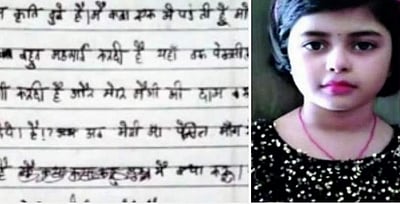 कृति दुबे है। मैं कक्षा एक में पढ़ती हूँ मो
बहुत महगाई करदी है यहाँ तक पेन्सील
करदी है और मेरे मैगी की दाम बढ
है।? अब मेरी मां पेंसिल मांग
में क्या करू।